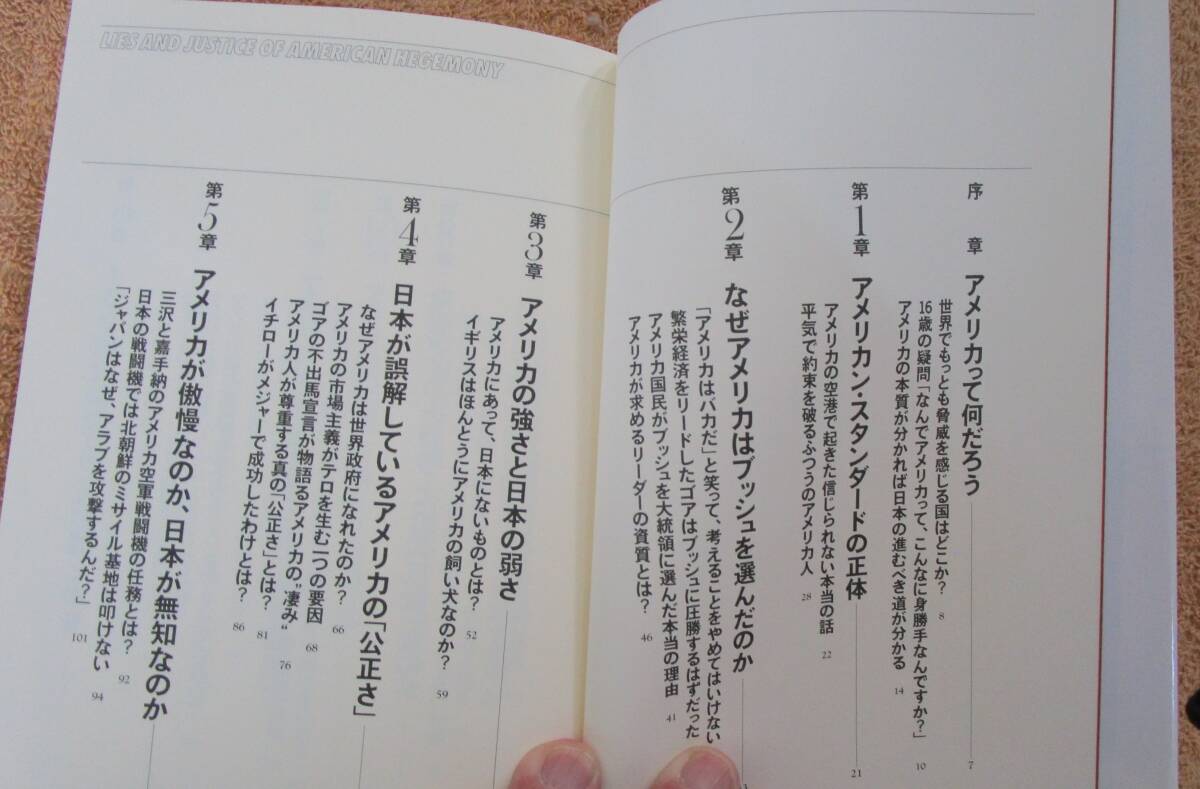 LIES AND JUSTICE OF AMERICAN HEGEMONY
序　章　アメリカって何だろう 7
世界でもっとも脅威を感じる国はどこか? 8
16歳の疑問「なんでアメリカって、こんなに身勝手なんですか?」 10
アメリカの本質が分かれば日本の進むべき道が分かる 14
第1章　アメリカン・スタンダードの正体 21
アメリカの空港で起きた信じられない本当の話 22
平気で約束を破るふつうのアメリカ人 28
第2章　なぜアメリカはブッシュを選んだのか
「アメリカはバカだ」と笑って、考えることをやめてはいけない
繁栄経済をリードしたゴアはブッシュに圧勝するはずだった
アメリカ国民がブッシュを大統領に選んだ本当の理由 41
アメリカが求めるリーダーの資質とは? 46
第3章　アメリカの強さと日本の弱さ
アメリカにあって、日本にないものとは? 52
イギリスはほんとうにアメリカの飼い犬なのか? 59
第4章　日本が誤解しているアメリカの「公正さ」
なぜアメリカは世界政府になれたのか? 66
アメリカの市場主義がテロを生む一つの要因 68
ゴアの不出馬宣言が物語るアメリカの"凄み" 76
アメリカ人が尊重する真の「公正さ」とは? 81
イチローがメジャーで成功したわけとは? 86
第5章　アメリカが傲慢なのか、日本が無知なのか
三沢と嘉手納のアメリカ空軍戦闘機の任務とは? 92
日本の戦闘機では北朝鮮のミサイル基地は叩けない 94
「ジャパンはなぜ、アラブを攻撃するんだ?」 101